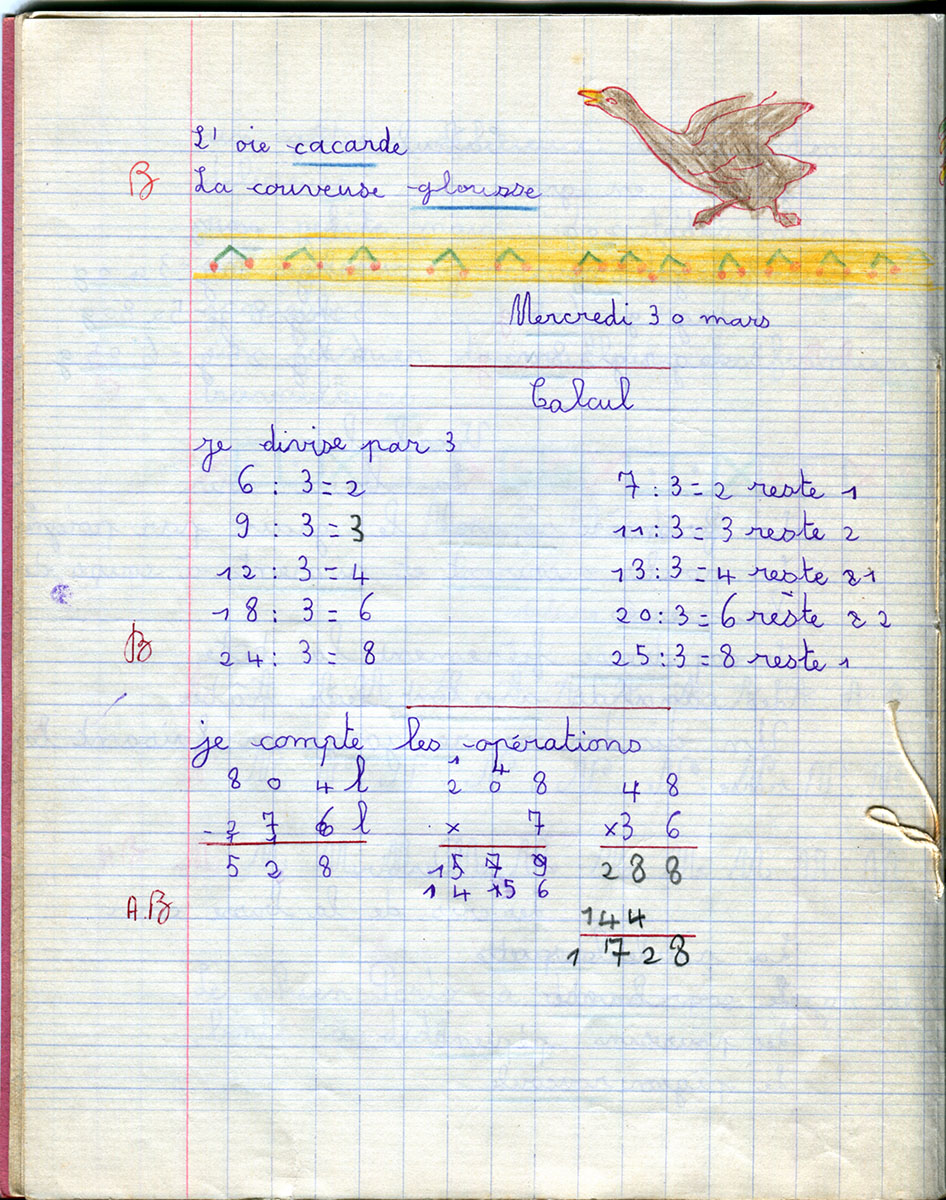 L' oie cacarde
B La couveuse glousse
Mercredi 30 mars
Calcul
je divise par 3
6 : 3 = 2 7 : 3 = 2 reste 1
9 : 3 = 3 11 : 3 = 3 reste 2
12 : 3 = 4 13 : 3 = 4 reste 1
18 : 3 = 6 20 : 3 = 6 reste 2
B 24 : 3 = 8 25 : 3 = 8 reste 1
je compte les opérations
1 4
8 0 4 l 2 0 8 4 8
- 2 7 6 l x 7 x 3 6
5 2 8 1 5 7 9 2 8 8
1 4 5 6
A.B 1 4 4
1 7 2 8